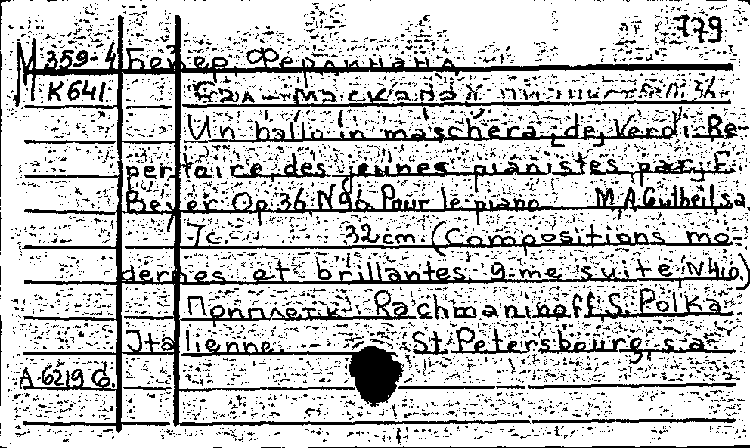 779
М 359-4 Бейер Фердинанд
К 641 Бал-маскарад
Un ballo in maschera, de, Verdi. Re-
pertoire, des jeunes pianistes, par, F.
Beyer. Op. 36, N 96. Pour le piano. M, A. Gutheil s.a.
7c. 32cm. (Compositions mo-
dernes et brillantes. 9-me suite, N 410)
Приплетк. Rachmaninoff, S. Polka
Italienne. St. Petersbourg, s.a.
А-6219 б.